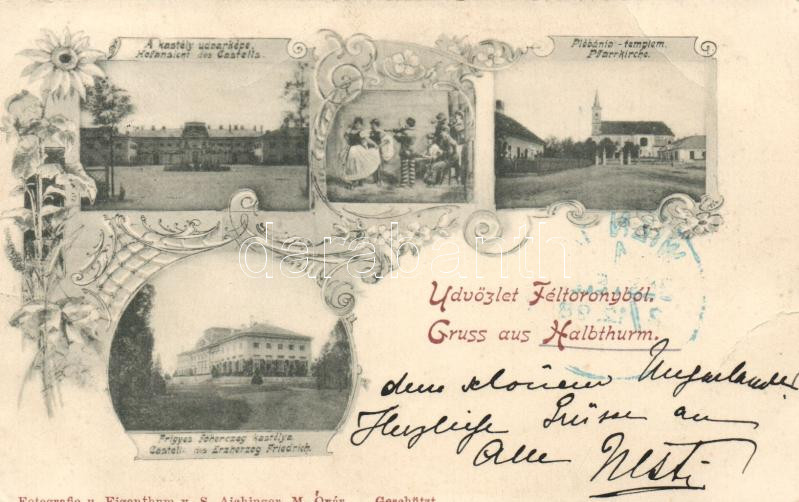 A kastély udvarképe.
Hofansicht des Castells.
Plébánia-templom.
Pfarrkirche.
darabanth
WIEN
Üdvözlet Féltoronyból.
Gruss aus Halbthurm.
Frigyes főherczeg kastélya
Castell des Erzherzog Friedrich.
dem schönen Ungarlande
Herzliche Grüsse an
Alle
Fotografie u. Eigenthum v. S. Aichinger, M. Óvár. Geschützt.